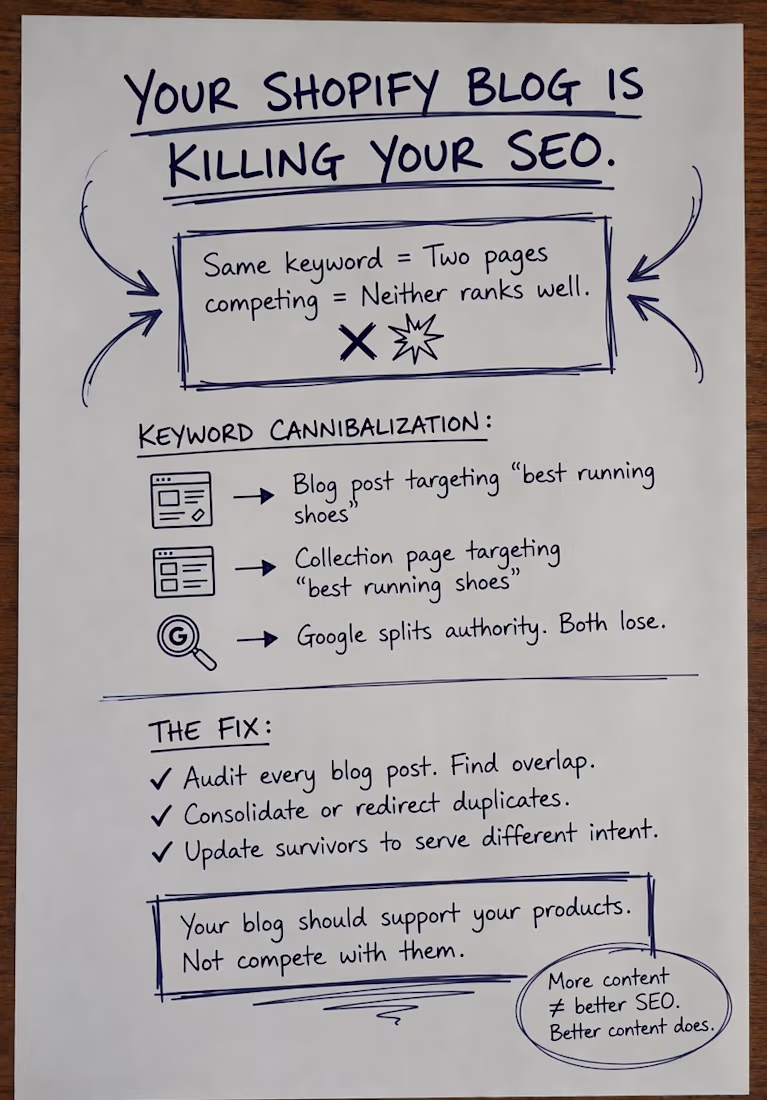 YOUR SHOPIFY BLOG IS
KILLING YOUR SEO.
Same keyword = Two pages
competing = Neither ranks well.
KEYWORD CANNIBALIZATION:
Blog post targeting “best running
shoes”
Collection page targeting
“best running shoes”
G
Google splits authority. Both lose.
THE FIX:
✓ Audit every blog post. Find overlap.
✓ Consolidate or redirect duplicates.
✓ Update survivors to serve different intent.
Your blog should support your products.
Not compete with them.
More content
≠ better SEO.
Better content does.